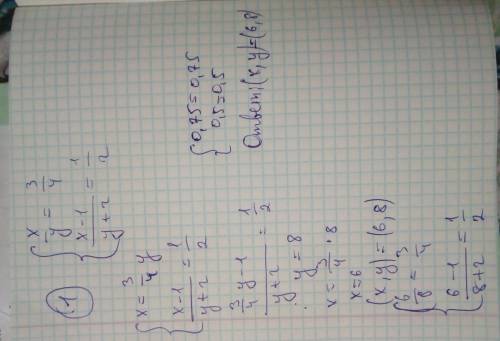 1
{ x/y = 3/4
{ (x-1)/(y+2) = 1/2
{ x = 3/4 y
{ (x-1)/(y+2) = 1/2
(3/4 y - 1)/(y+2) = 1/2
y = 8
x = 3/4 · 8
x = 6
(x, y) = (6, 8)
{ 6/8 = 3/4
{ (6-1)/(8+2) = 1/2
{ 0,75 = 0,75
{ 0,5 = 0,5
Ответ: (x, y) = (6, 8)